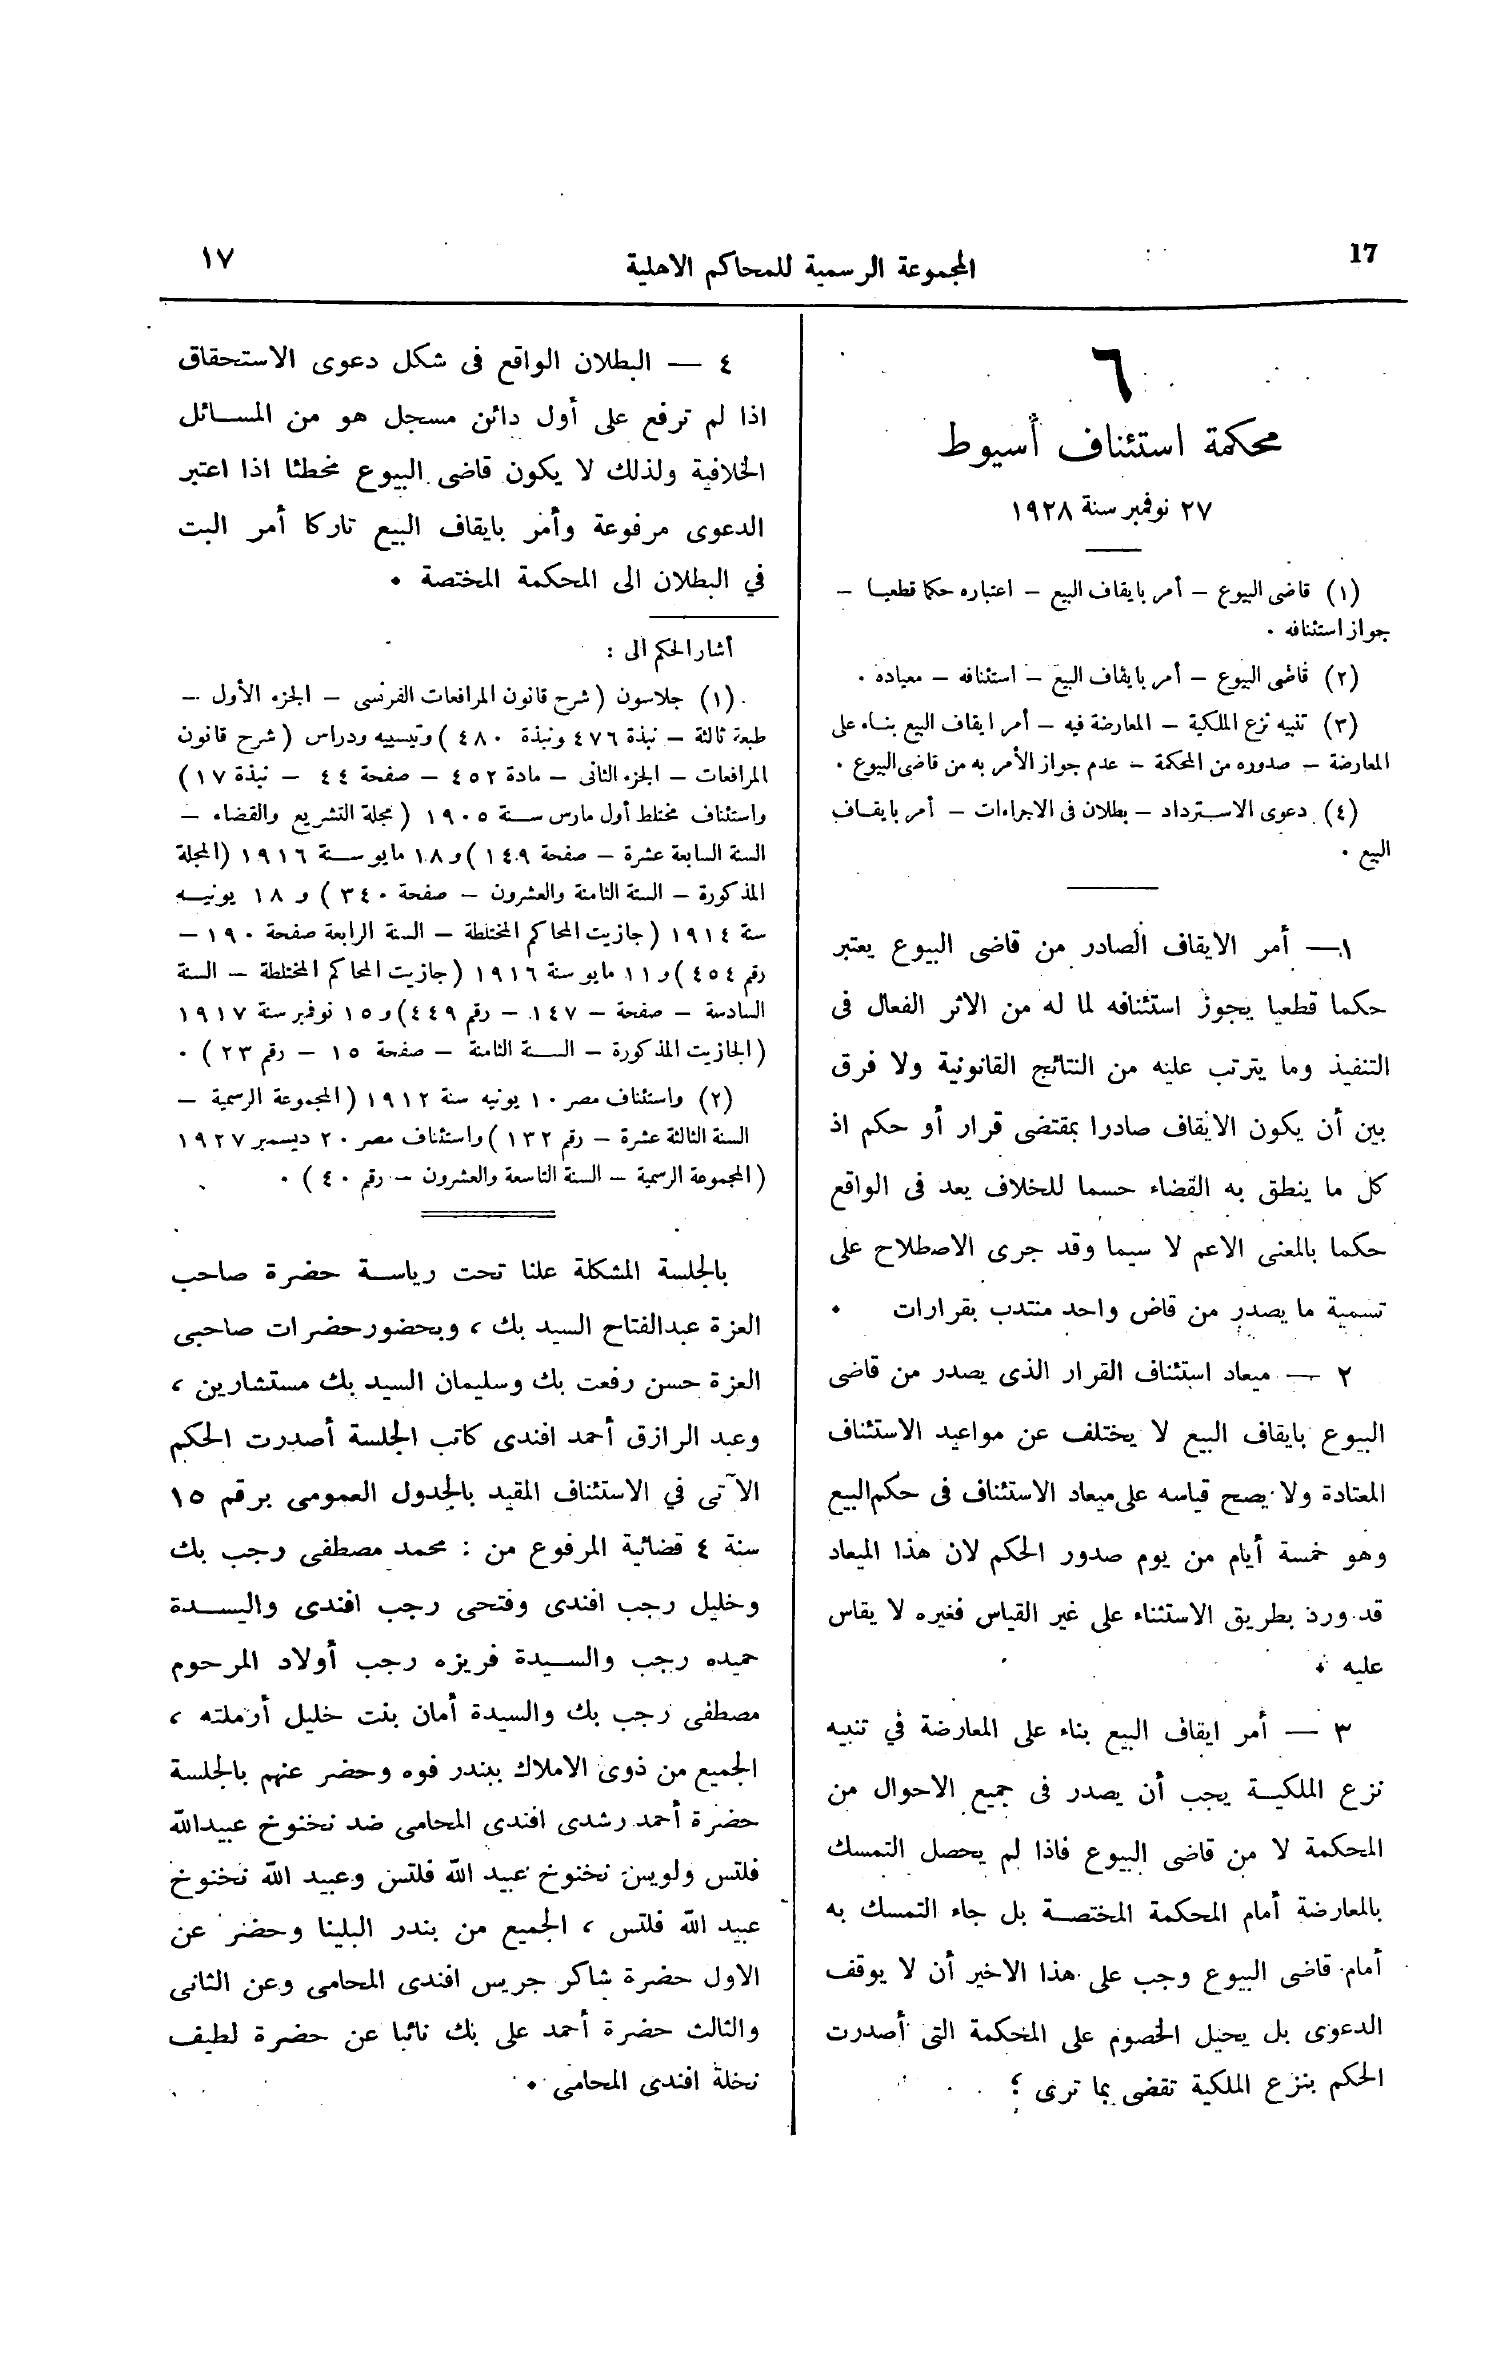 17
المجموعة الرسمية للمحاكم الاهلية
١٧
٦
محكمة استئناف أسيوط
٢٧ نوفمبر سنة ١٩٢٨
(١) قاضى البيوع – أمر بايقاف البيع – اعتباره حكما قطعيا –
جواز استئنافه ٠
(٢) قاضى البيوع – أمر بايقاف البيع – استئنافه – معياده ٠
(٣) تنبيه نزع الملكية – المعارضة فيه – أمر ايقاف البيع بناء على
المعارضة – صدوره من المحكمة – عدم جواز الأمر به من قاضى البيوع ٠
(٤) دعوى الاسترداد – بطلان فى الاجراءات – أمر بايقاف
البيع ٠
١ — أمر الايقاف الصادر من قاضى البيوع يعتبر
حكما قطعيا يجوز استئنافه لما له من الاثر الفعال فى
التنفيذ وما يترتب عليه من النتائج القانونية ولا فرق
بين أن يكون الايقاف صادرا بمقتضى قرار أو حكم اذ
كل ما ينطق به القضاء حسما للخلاف يعد فى الواقع
حكما بالمعنى الاعم لا سيما وقد جرى الاصطلاح على
تسمية ما يصدر من قاض واحد منتدب بقرارات ٠
٢ — ميعاد استئناف القرار الذى يصدر من قاضى
البيوع بايقاف البيع لا يختلف عن مواعيد الاستئناف
المعتادة ولا يصح قياسه على ميعاد الاستئناف فى حكم البيع
وهو خمسة أيام من يوم صدور الحكم لان هذا الميعاد
قد ورد بطريق الاستثناء على غير القياس فغيره لا يقاس
عليه ٠
٣ — أمر ايقاف البيع بناء على المعارضة في تنبيه
نزع الملكية يجب أن يصدر فى جميع الاحوال من
المحكمة لا من قاضى البيوع فاذا لم يحصل التمسك
بالمعارضة أمام المحكمة المختصة بل جاء التمسك به
أمام قاضى البيوع وجب على هذا الاخير أن لا يوقف
الدعوى بل يحيل الخصوم على المحكمة التى أصدرت
الحكم بنزع الملكية تقضى بما ترى ؛
٤ — البطلان الواقع فى شكل دعوى الاستحقاق
اذا لم ترفع على أول دائن مسجل هو من المسائل
الخلافية ولذلك لا يكون قاضى البيوع مخطئا اذا اعتبر
الدعوى مرفوعة وأمر بايقاف البيع تاركا أمر البت
في البطلان الى المحكمة المختصة ٠
أشار الحكم الى :
(١) جلاسون ( شرح قانون المرافعات الفرنسى – الجزء الأول –
طبعة ثالثة – نبذة ٤٧٦ ونبذة ٤٨٠ ) وتيسييه ودراس ( شرح قانون
المرافعات – الجزء الثانى – مادة ٤٥٢ – صفحة ٤٤ – نبذة ١٧ )
واستئناف مختلط أول مارس سنة ١٩٠٥ ( مجلة التشريع والقضاء –
السنة السابعة عشرة – صفحة ١٤٩ ) و ١٨ مايو سنة ١٩١٦ ( المجلة
المذكورة – السنة الثامنة والعشرون – صفحة ٣٤٠ ) و ١٨ يونيه
سنة ١٩١٤ ( جازيت المحاكم المختلطة – السنة الرابعة صفحة ١٩٠ –
رقم ٤٥٤ ) و ١١ مايو سنة ١٩١٦ ( جازيت المحاكم المختلطة – السنة
السادسة – صفحة – ١٤٧ – رقم ٤٤٩ ) و ١٥ نوفمبر سنة ١٩١٧
( الجازيت المذكورة – السنة الثامنة – صفحة ١٥ – رقم ٢٣ ) ٠
(٢) واستئناف مصر ١٠ يونيه سنة ١٩١٢ ( المجموعة الرسمية –
السنة الثالثة عشرة – رقم ١٣٢ ) واستئناف مصر ٢٠ ديسمبر ١٩٢٧
( المجموعة الرسمية – السنة التاسعة والعشرون – رقم ٤٠ ) ٠
بالجلسة المشكلة علنا تحت رياسة حضرة صاحب
العزة عبدالفتاح السيد بك ، وبحضور حضرات صاحبى
العزة حسن رفعت بك وسليمان السيد بك مستشارين ،
وعبد الرازق أحمد افندى كاتب الجلسة أصدرت الحكم
الآتى في الاستئناف المقيد بالجدول العمومى برقم ١٥
سنة ٤ قضائية المرفوع من : محمد مصطفى رجب بك
وخليل رجب افندى وفتحى رجب افندى واليسدة
حميده رجب والسيدة فريزه رجب أولاد المرحوم
مصطفى رجب بك والسيدة أمان بنت خليل أرملته ،
الجميع من ذوى الاملاك ببندر فوه وحضر عنهم بالجلسة
حضرة أحمد رشدى افندى المحامى ضد نخنوخ عبيدالله
فلتس ولويس نخنوخ عبيد الله فلتس وعبيد الله نخنوخ
عبيد الله فلتس ، الجميع من بندر البلينا وحضر عن
الاول حضرة شاكر جريس افندى المحامى وعن الثانى
والثالث حضرة أحمد على بك نائبا عن حضرة لطيف
نخلة افندى المحامى ٠